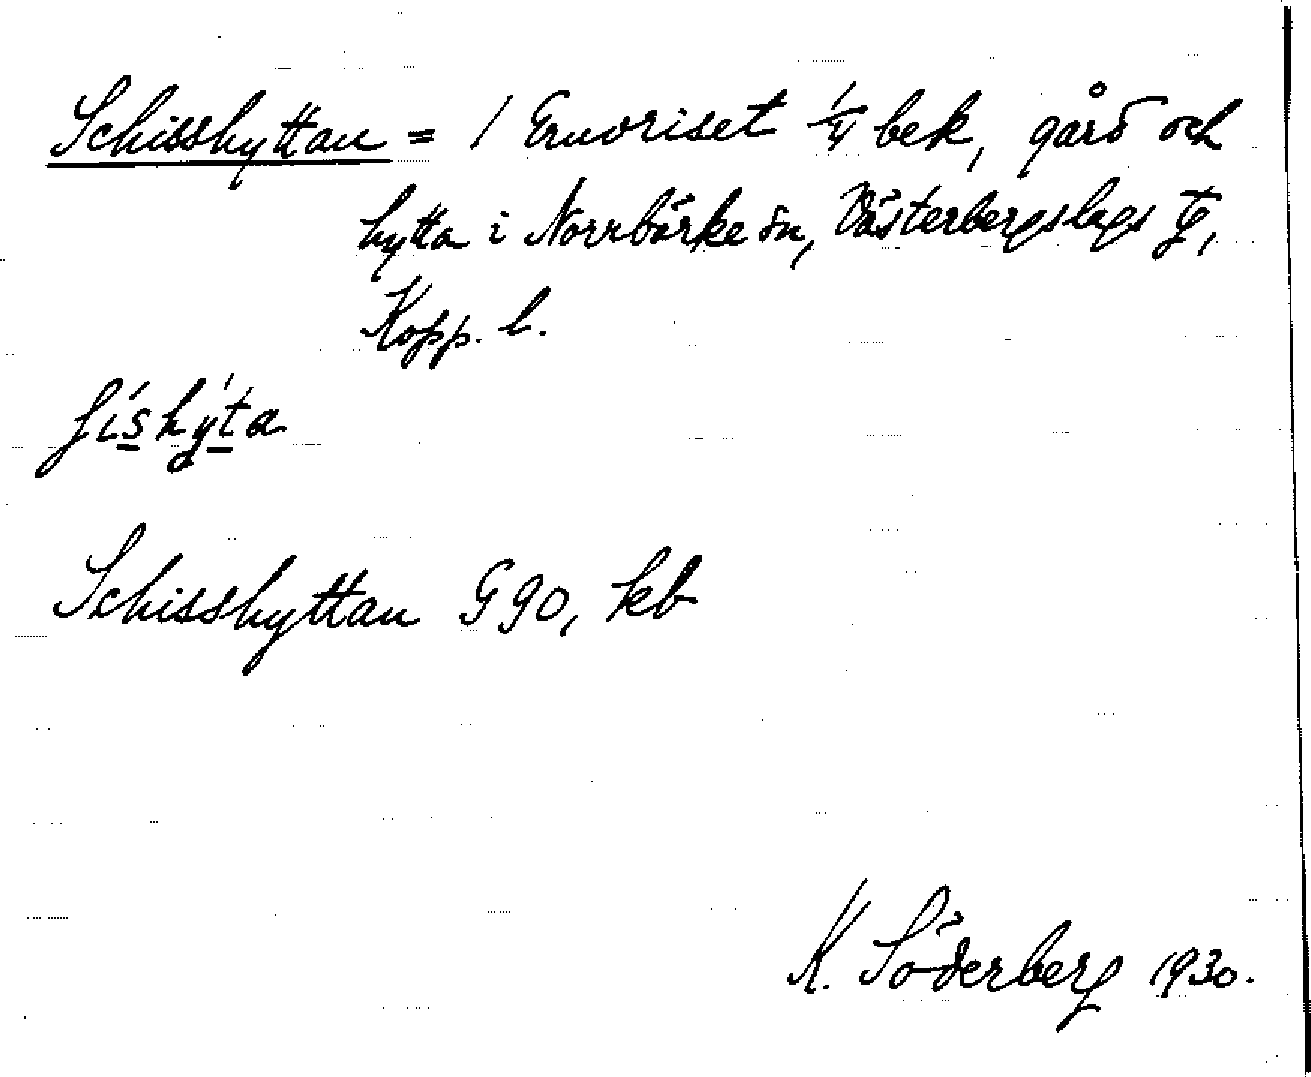 Schisshyttan = 1 Ernvoriset 1/4 bek, gård och
hytta i Norrbärke sn, Västerbergslags tg,
Kopp. l.
ʃíshỳta
Schisshyttan G 90, kb
K. Söderberg 1930.